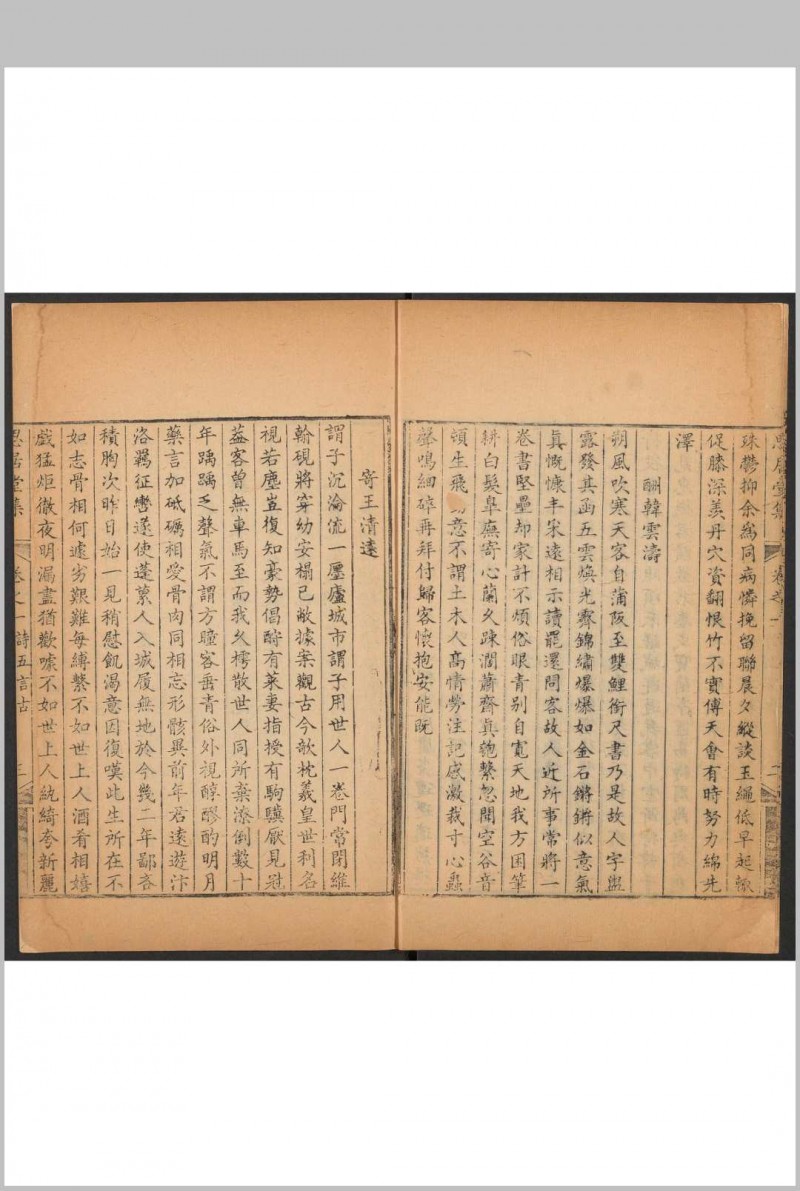 居堂集 卷之一 二
珠鬱抑余為同病憐挽留聯晨夕縱談玉繩低早起
促膝深羡丹穴資翻恨竹不實傳天會有時努力綿先
澤
酬韓雲濤
朔風吹寒天客自蒲阪至雙鯉銜尺書乃是故人字盥
露發其函五雲煥光霽錦繡爆爆如金石鏘鏘似意氣
真慨慷丰采遠相示讀罷還問客故人近所事常將一
卷書堅壘却家計不煩俗眼青别自寬天地我方困筆
耕白髮臯廡寄心蘭久疎濶蕭齋真匏繫忽聞空谷音
頓生飛意不謂土木人高情勞注記感激裁寸心蟲
聲鳴細碎再拜付歸客懷抱安能既
寄王清遠
謂子沉淪流一廛廬城市謂子用世人一巷門常閉維
翰硯將穿幼安榻已敝據案觀古今欹枕羲皇世利名
視若塵豈復知豪勢倡酧有萊妻指授有駒驥厭見冠
蓋客曾無車馬至而我久樗散世人同所棄潦倒數十
年踽踽乏聲氣不謂方瞳客垂青俗外視醇醪酌明月
藥言加砥礪相愛骨肉同相忘形骸異前年君遠遊汴
洛羈征轡遂使蓬蔂人入城履無地於今幾二年鄙吝
積胸次昨日始一見稍慰飢渴意因復嘆此生所在不
如志骨相何遽劣艱難每縛繫不如世上人酒肴相嬉
戲猛炬徹夜明漏盡猶歡噱不如世上人紈綺夸新麗
居堂集 卷之一詩五言古 三